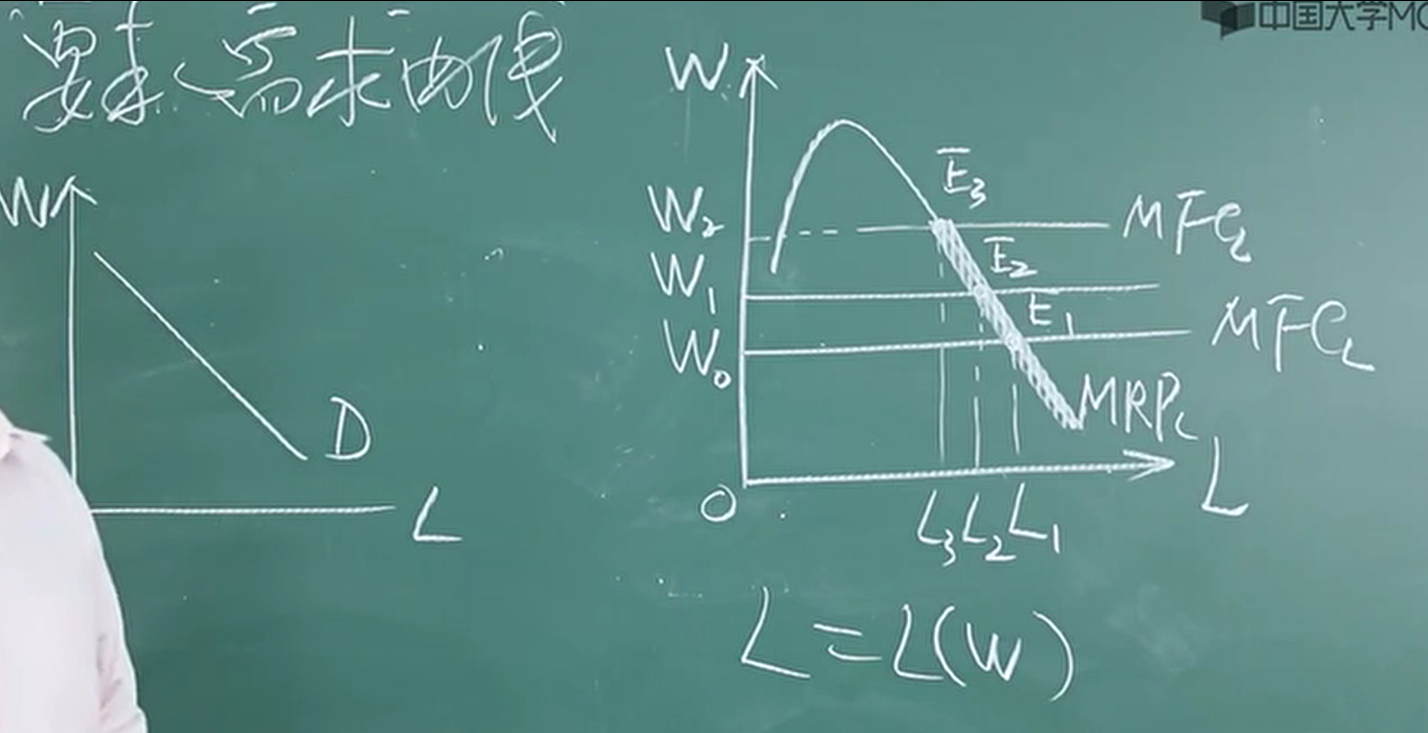 中国大学MO
要素需求曲线
W
D
L
W
W₂
W₁
W₀
O
E₃
E₂
E₁
MFC_L
MFC_L
MRP_L
L
L₃ L₂ L₁
L=L(W)